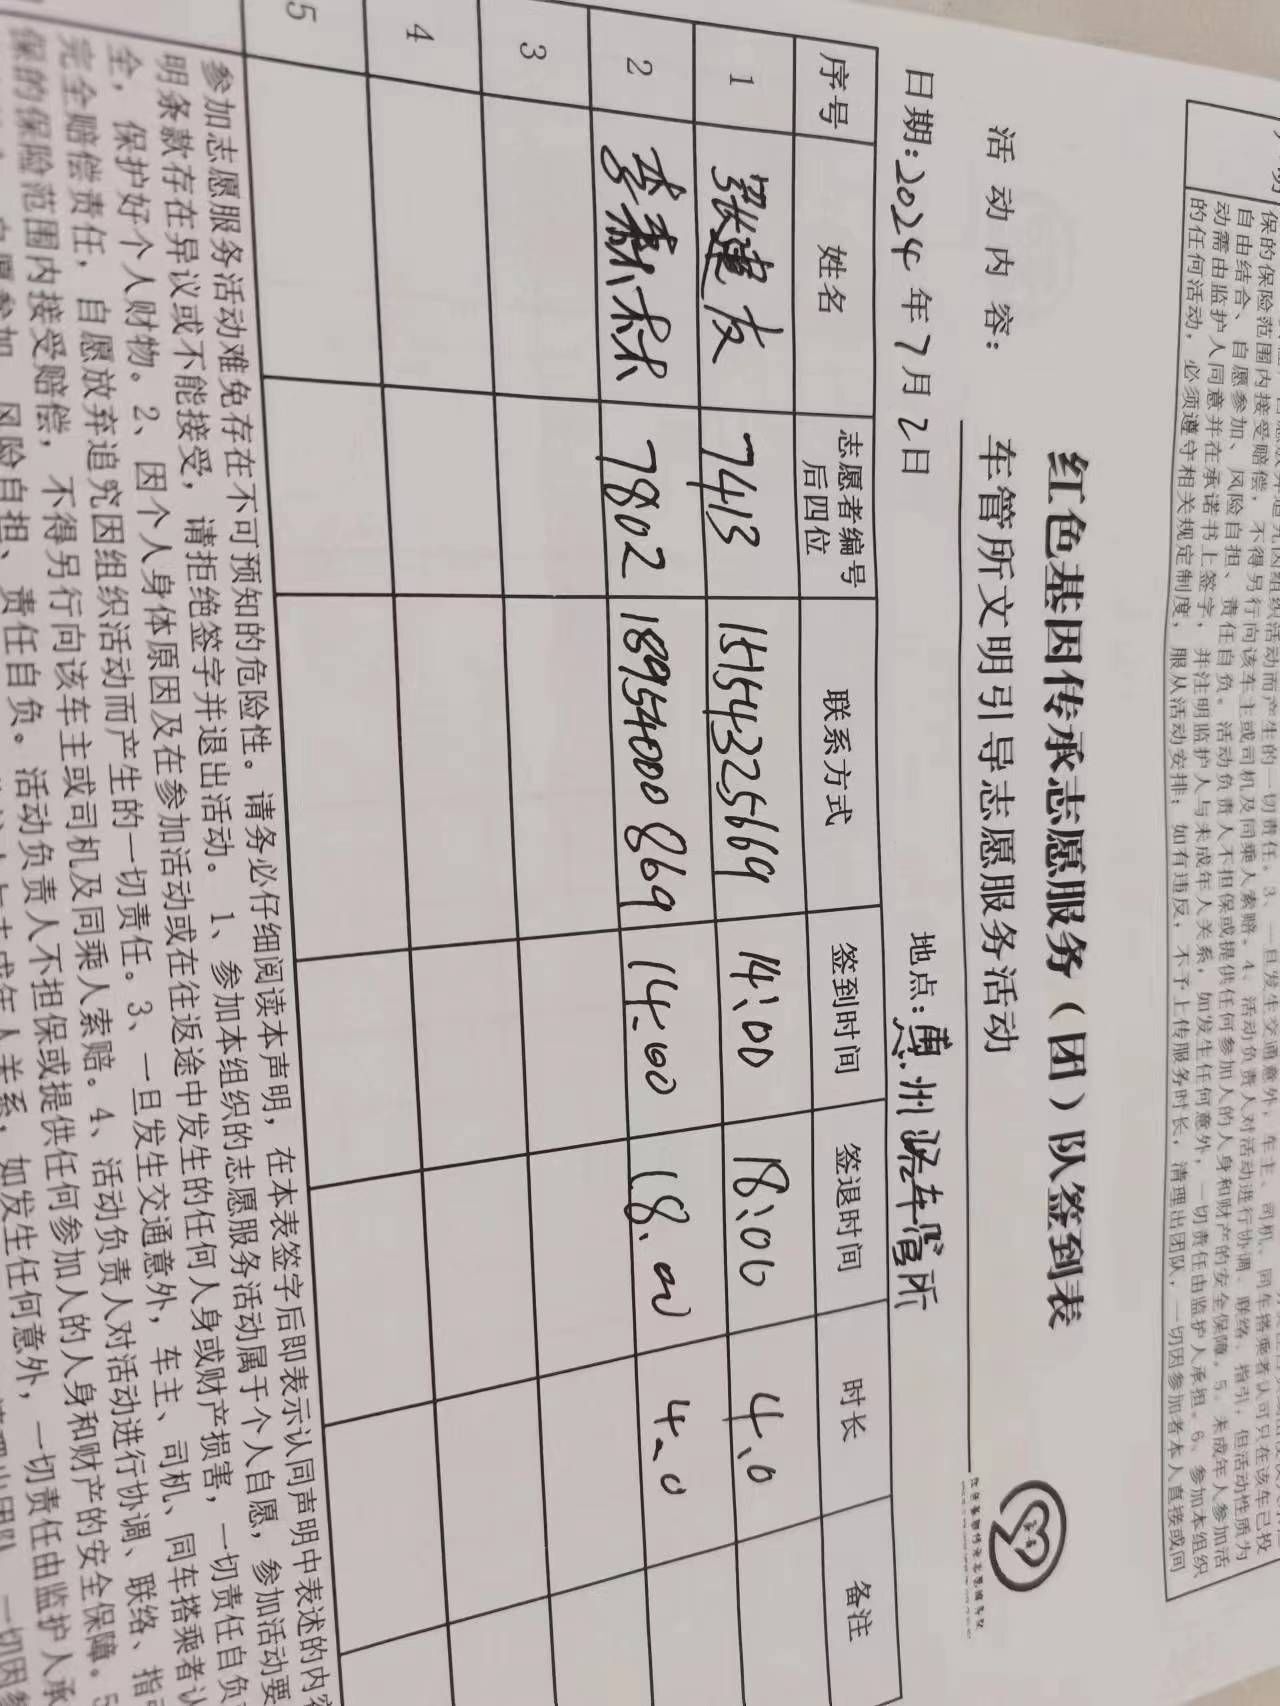 保的保险范围内接受赔偿，不得另行向该车主或司机及同乘人索赔。4、活动负责人对活动进行协调、联络、指引，但活动性质为
自由结合、自愿参加、风险自担、责任自负。活动负责人不担保或提供任何参加人的人身和财产的安全保障。5、未成年人参加活
动需由监护人同意并在承诺书上签字，并注明监护人与未成年人关系，如发生任何意外，一切责任由监护人承担。6、参加本组织
的任何活动，必须遵守相关规定制度，服从活动安排；如有违反，不予上传服务时长，清理出团队，一切因参加者本人直接或间
红色基因传承志愿服务（团）队签到表
活动内容： 车管所文明引导志愿服务活动
日期：2024年7月2日 地点：惠州路车管所
序号 姓名 志愿者编号后四位 联系方式 签到时间 签退时间 时长 备注
1 张建友 7413 15154325669 14:00 18:00 4.0
2 李森林 7802 18954000869 14:00 18.00 4.0
3
4
5
参加志愿服务活动难免存在不可预知的危险性。请务必仔细阅读本声明，在本表签字后即表示认同声明中表述的内容
明条款存在异议或不能接受，请拒绝签字并退出活动。1、参加本组织的志愿服务活动属于个人自愿，参加活动要
全，保护好个人财物。2、因个人身体原因及在参加活动或在往返途中发生的任何人身或财产损害，一切责任自负
完全赔偿责任，自愿放弃追究因组织活动而产生的一切责任。3、一旦发生交通意外，车主、司机、同车搭乘者认
保的保险范围内接受赔偿，不得另行向该车主或司机及同乘人索赔。4、活动负责人对活动进行协调、联络、指
自愿参加、风险自担、责任自负。活动负责人不担保或提供任何参加人的人身和财产的安全保障。5
成年人关系，如发生任何意外，一切责任由监护人承